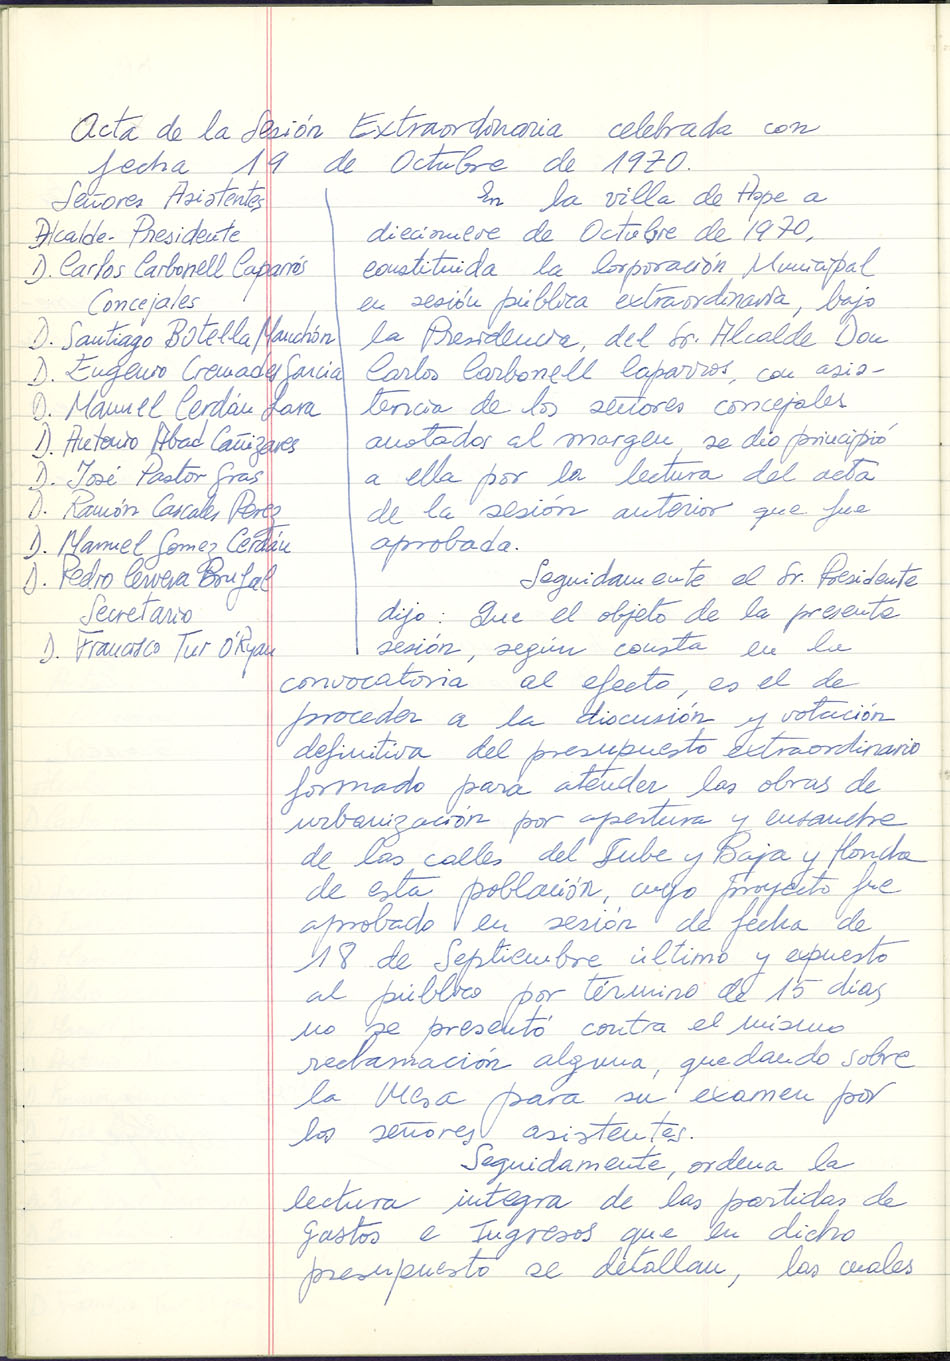 Acta de la Sesión Extraordinaria celebrada con
fecha 19 de Octubre de 1970.
Señores Asistentes
Alcalde-Presidente
D. Carlos Carbonell Caparrós
Concejales
D. Santiago Botella Manchón
D. Eugenio Cremades Garcia
D. Manuel Cerdán Lara
D. Antonio Abad Cañizares
D. José Pastor Gras
D. Ramón Cascales Perez
D. Manuel Gomez Cerdán
D. Pedro Cervera Brufal
Secretario
D. Francisco Tur O'Ryan
En la villa de Aspe a
diecinueve de Octubre de 1970,
constituida la Corporación Municipal
en sesión pública extraordinaria, bajo
la Presidencia, del Sr. Alcalde Don
Carlos Carbonell Caparros, con asis-
tencia de los señores concejales
anotados al margen, se dió principió
a ella por la lectura del acta
de la sesión anterior que fue
aprobada.
Seguidamente el Sr. Presidente
dijo: Que el objeto de la presente
sesión, según consta en la
convocatoria al efecto, es el de
proceder a la discusión y votación
definitiva del presupuesto extraordinario
formado para atender las obras de
urbanización por apertura y ensanche
de las calles del Nube y Baja y Honda
de esta población, cuyo proyecto fue
aprobado en sesión de fecha de
18 de Septiembre último y expuesto
al público por término de 15 dias,
no se presentó contra el mismo
reclamación alguna, quedando sobre
la Mesa para su examen por
los señores asistentes.
Seguidamente, ordena la
lectura integra de las partidas de
Gastos e Ingresos que en dicho
presupuesto se detallan, las cuales